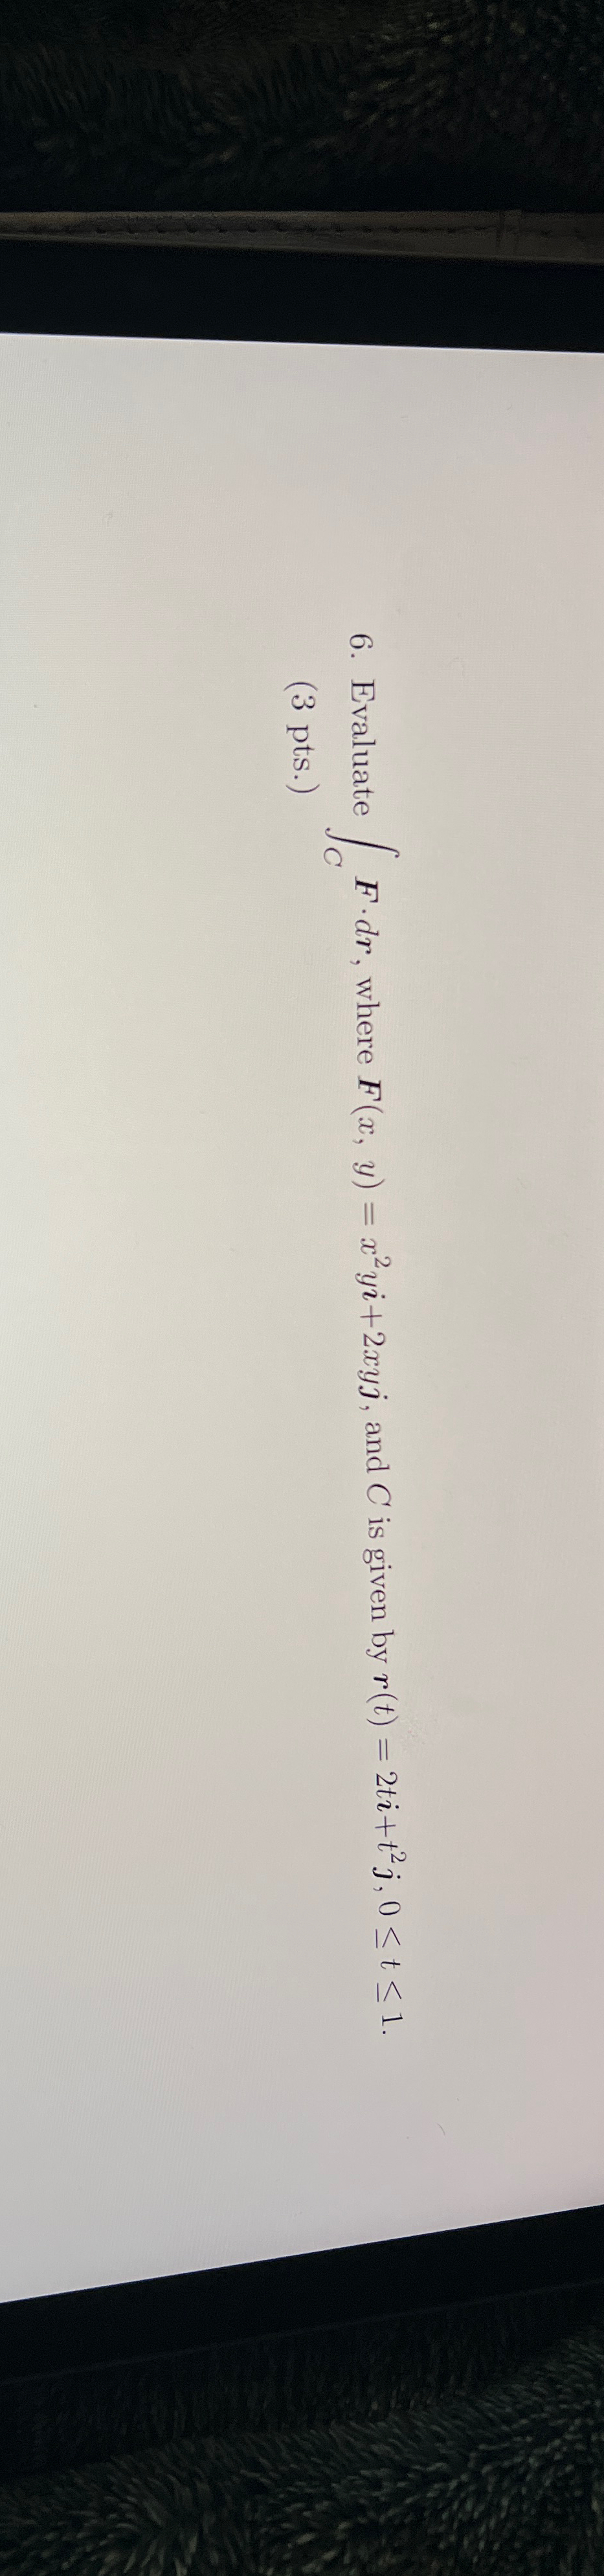 6. Evaluate ∫_C F·dr, where F(x, y) = x²yi+2xyj, and C is given by r(t) = 2ti+t²j, 0 ≤ t ≤ 1.
(3 pts.)